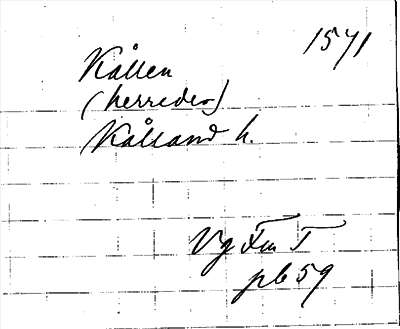 1571
Kållen
(herredes)
Kålland h.
Vg Fm T
pb 59